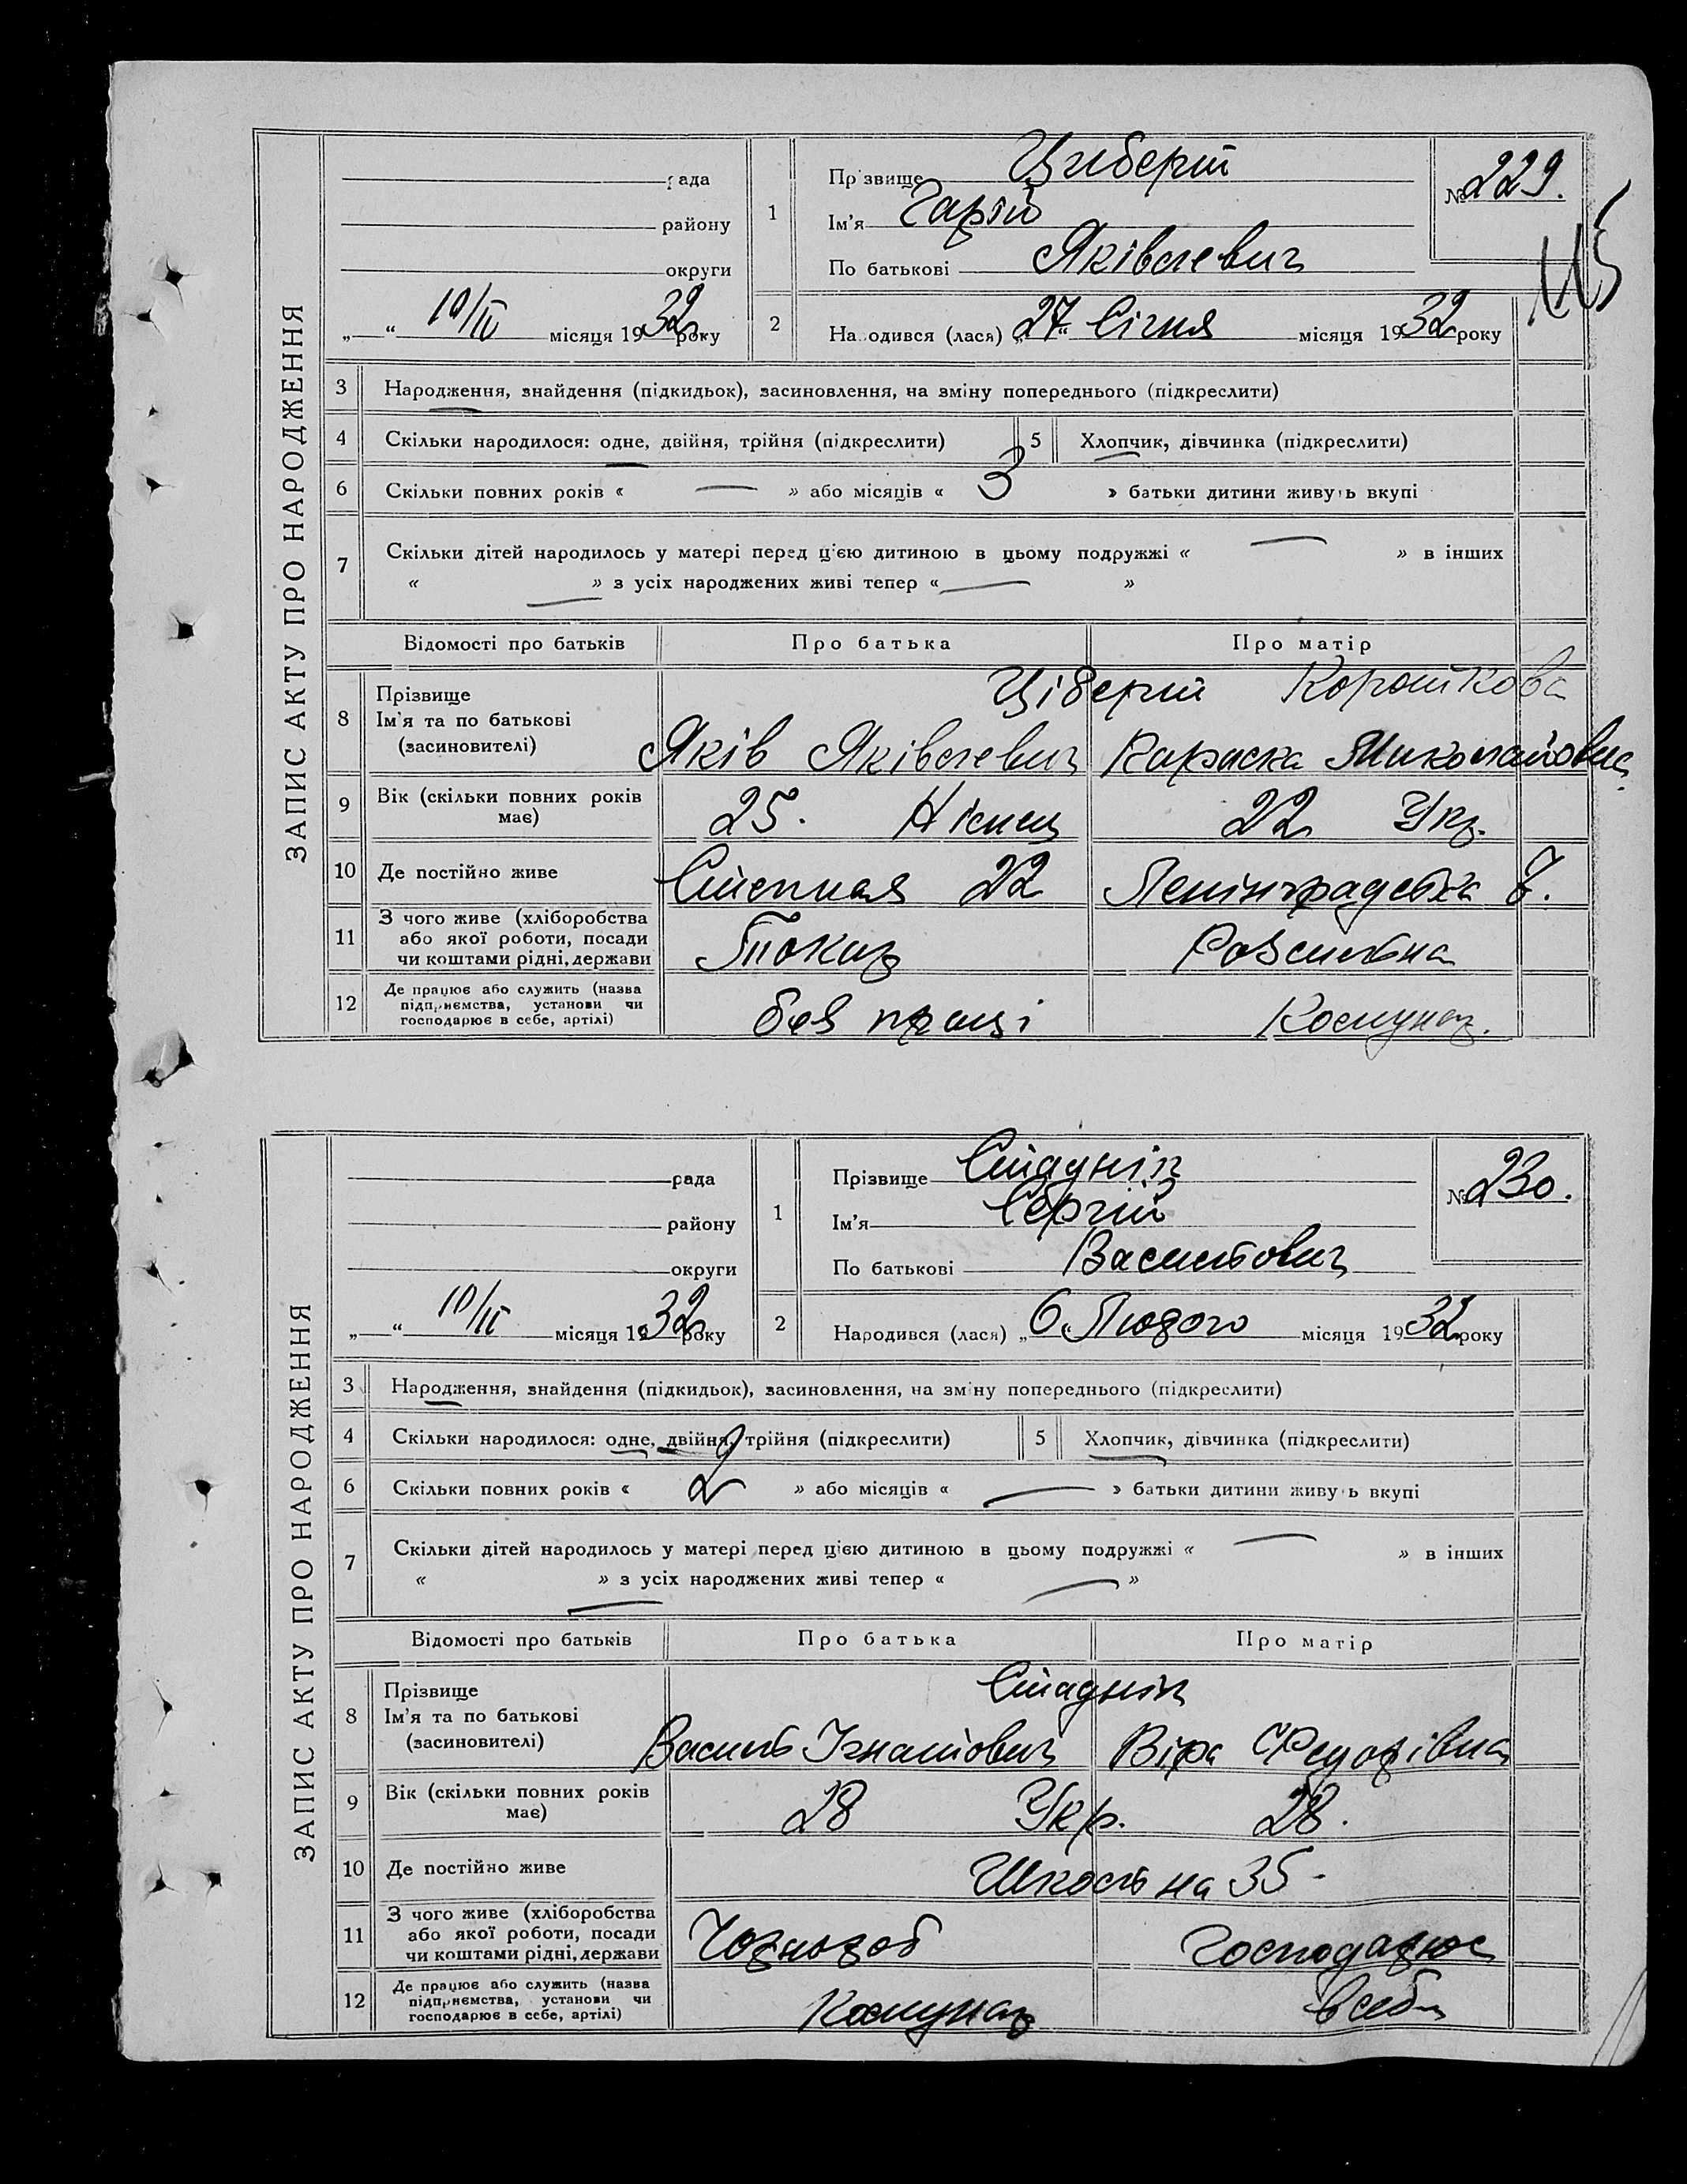 ЗАПИС АКТУ ПРО НАРОДЖЕННЯ
рада
району
округи
„ “ 10/II місяця 1932 року
1 Прізвище Циберт
Ім'я Гарій
По батькові Яківлевич
№ 229.
115
2 Народився (лася) „27“ Січня місяця 1932 року
3 Народження, знайдення (підкидьок), засиновлення, на зміну попереднього (підкреслити)
4 Скільки народилося: одне, двійня, трійня (підкреслити) 5 Хлопчик, дівчинка (підкреслити)
6 Скільки повних років « — » або місяців « 3 » батьки дитини живуть вкупі
7 Скільки дітей народилось у матері перед цією дитиною в цьому подружжі « — » в інших
« — » з усіх народжених живі тепер « — »
Відомості про батьків Про батька Про матір
8 Прізвище Ціберт Короткова
Ім'я та по батькові
(засновителі) Яків Яківлевич Параска Миколаївна
9 Вік (скільки повних років має) 25. Німец 22 Укр.
10 Де постійно живе Степная 22 Ленінградська 7.
11 З чого живе (хліборобства або якої роботи, посади чи коштами рідні, держави Токар
12 Де працює або служить (назва підприємства, установи чи господарює в себе, артілі) без праці Комунар.
ЗАПИС АКТУ ПРО НАРОДЖЕННЯ
рада
району
округи
„ “ 10/II місяця 1932 року
1 Прізвище Стаднік
Ім'я Сергій
По батькові Васильович
№ 230.
2 Народився (лася) „6“ Лютого місяця 1932 року
3 Народження, знайдення (підкидьок), засиновлення, на зміну попереднього (підкреслити)
4 Скільки народилося: одне, двійня, трійня (підкреслити) 5 Хлопчик, дівчинка (підкреслити)
6 Скільки повних років « 2 » або місяців « — » батьки дитини живуть вкупі
7 Скільки дітей народилось у матері перед цією дитиною в цьому подружжі « — » в інших
« — » з усіх народжених живі тепер « — »
Відомості про батьків Про батька Про матір
8 Прізвище Стаднік
Ім'я та по батькові
(засиновителі) Василь Ігнатович Віра Федорівна
9 Вік (скільки повних років має) 28 Укр. 28.
10 Де постійно живе Шкільна 35
11 З чого живе (хліборобства або якої роботи, посади чи коштами рідні, держави Чорнороб Господарює
12 Де працює або служить (назва підприємства, установи чи господарює в себе, артілі) Комунар в себе